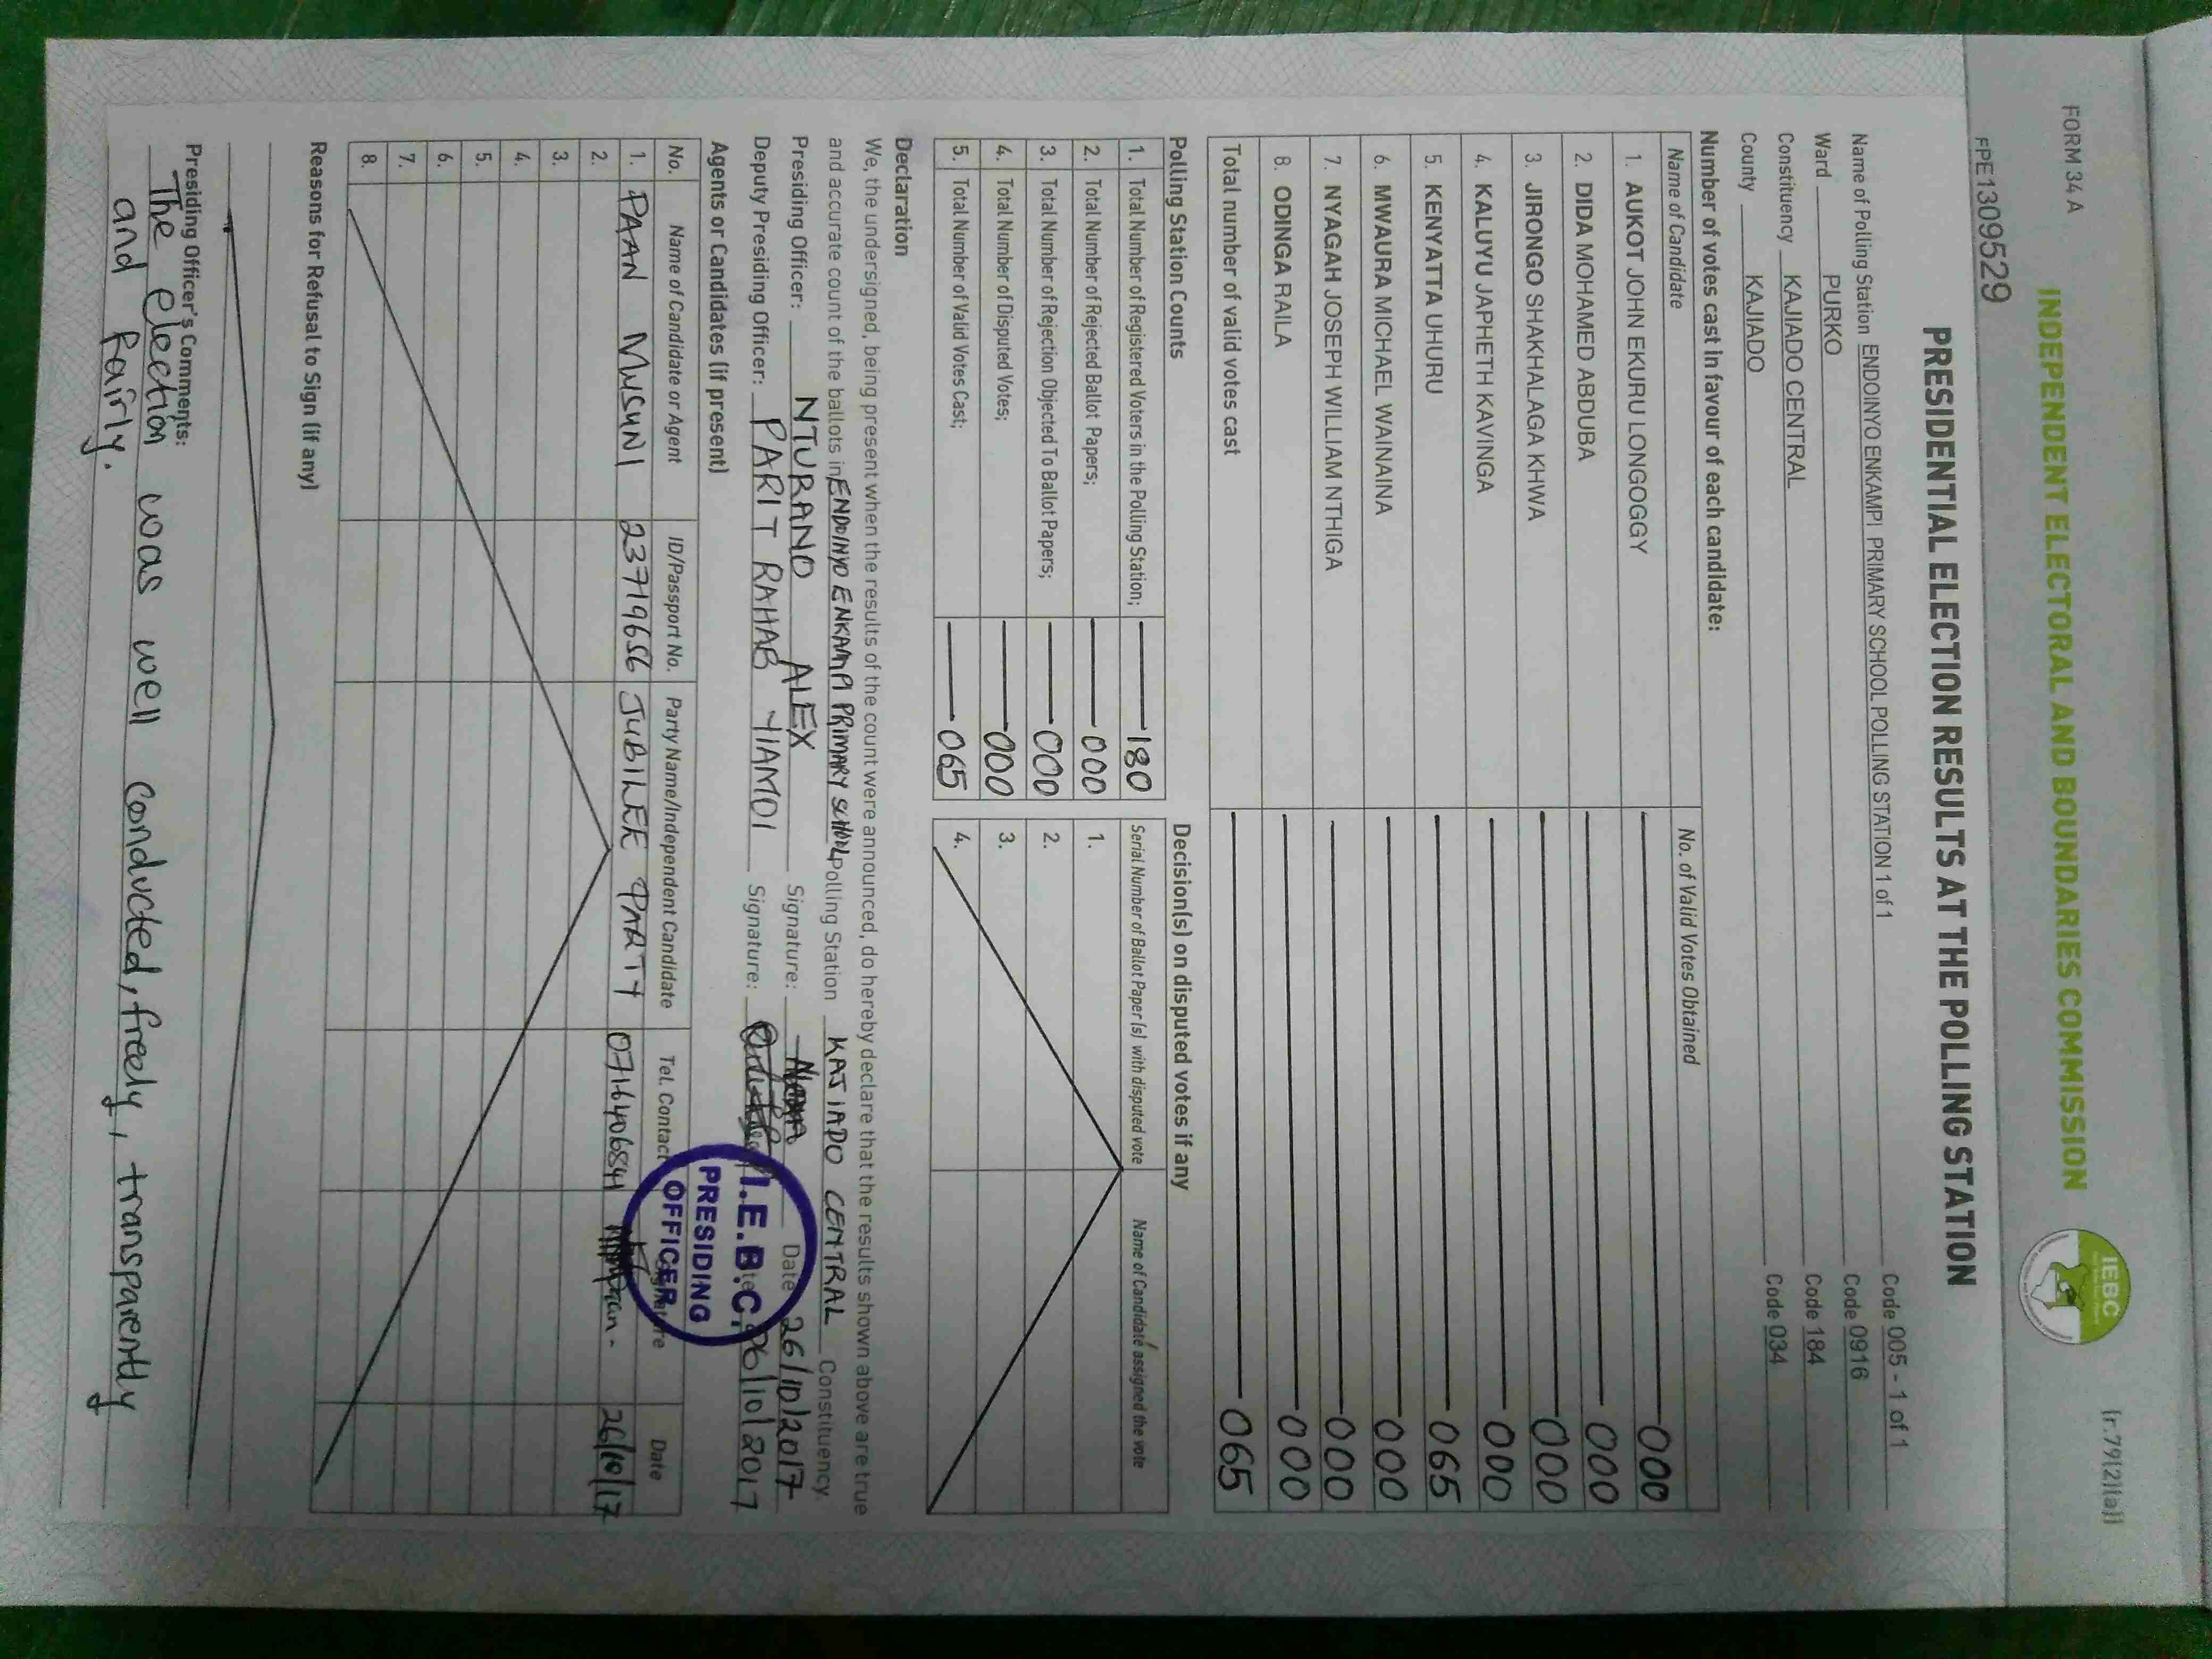 FORM 34 A
(r.79(2)(a))
INDEPENDENT ELECTORAL AND BOUNDARIES COMMISSION
IEBC
FPE1309529
PRESIDENTIAL ELECTION RESULTS AT THE POLLING STATION
Name of Polling Station ENDOINYO ENKAMPI PRIMARY SCHOOL POLLING STATION 1 of 1 Code 005 - 1 of 1
Ward PURKO Code 0916
Constituency KAJIADO CENTRAL Code 184
County KAJIADO Code 034
Number of votes cast in favour of each candidate:
Name of Candidate No. of Valid Votes Obtained
1. AUKOT JOHN EKURU LONGOGGY 000
2. DIDA MOHAMED ABDUBA 000
3. JIRONGO SHAKHALAGA KHWA 000
4. KALUYU JAPHETH KAVINGA 000
5. KENYATTA UHURU 065
6. MWAURA MICHAEL WAINAINA 000
7. NYAGAH JOSEPH WILLIAM NTHIGA 000
8. ODINGA RAILA 000
Total number of valid votes cast 065
Polling Station Counts
1. Total Number of Registered Voters in the Polling Station; 180
2. Total Number of Rejected Ballot Papers; 000
3. Total Number of Rejection Objected To Ballot Papers; 000
4. Total Number of Disputed Votes; 000
5. Total Number of Valid Votes Cast; 065
Decision(s) on disputed votes if any
Serial Number of Ballot Paper (s) with disputed vote Name of Candidate assigned the vote
1.
2.
3.
4.
Declaration
We, the undersigned, being present when the results of the count were announced, do hereby declare that the results shown above are true
and accurate count of the ballots in ENDOINYO ENKAMPI PRIMARY SCHOOL Polling Station KAJIADO CENTRAL Constituency.
Presiding Officer: NTURANO ALEX Signature: Date 26/10/2017
Deputy Presiding Officer: PARIT RAHAB YIAMOI Signature: 26/10/2017
I.E.B.C.
PRESIDING
OFFICER
Agents or Candidates (if present)
No. Name of Candidate or Agent ID/Passport No. Party Name/Independent Candidate Tel. Contact Signature Date
1. PAAN MUSUNI 23719656 JUBILEE PARTY 0716406841 26/10/17
2.
3.
4.
5.
6.
7.
8.
Reasons for Refusal to Sign (if any)
Presiding Officer's Comments:
The election was well conducted, freely, transparently
and fairly.